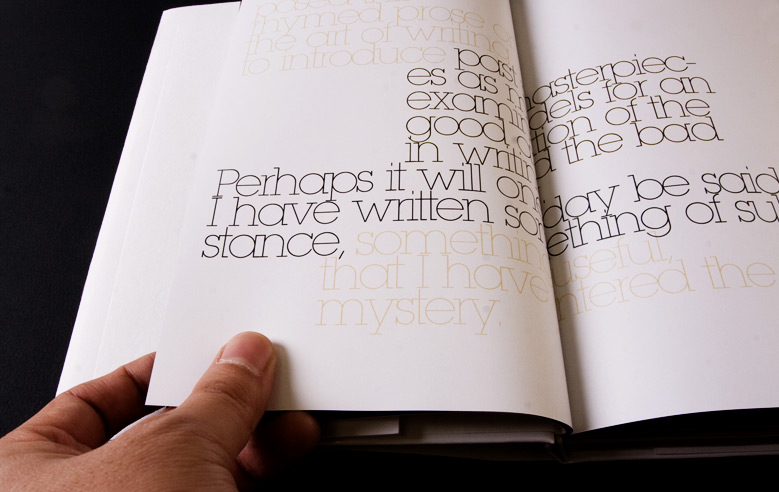 rhymed prose
the art of writing
to introduce past masterpiec-
es as models for an
examination of the
good and the bad
in writing
Perhaps it will one day be said
I have written something of sub
stance, something useful,
that I have entered the
mystery